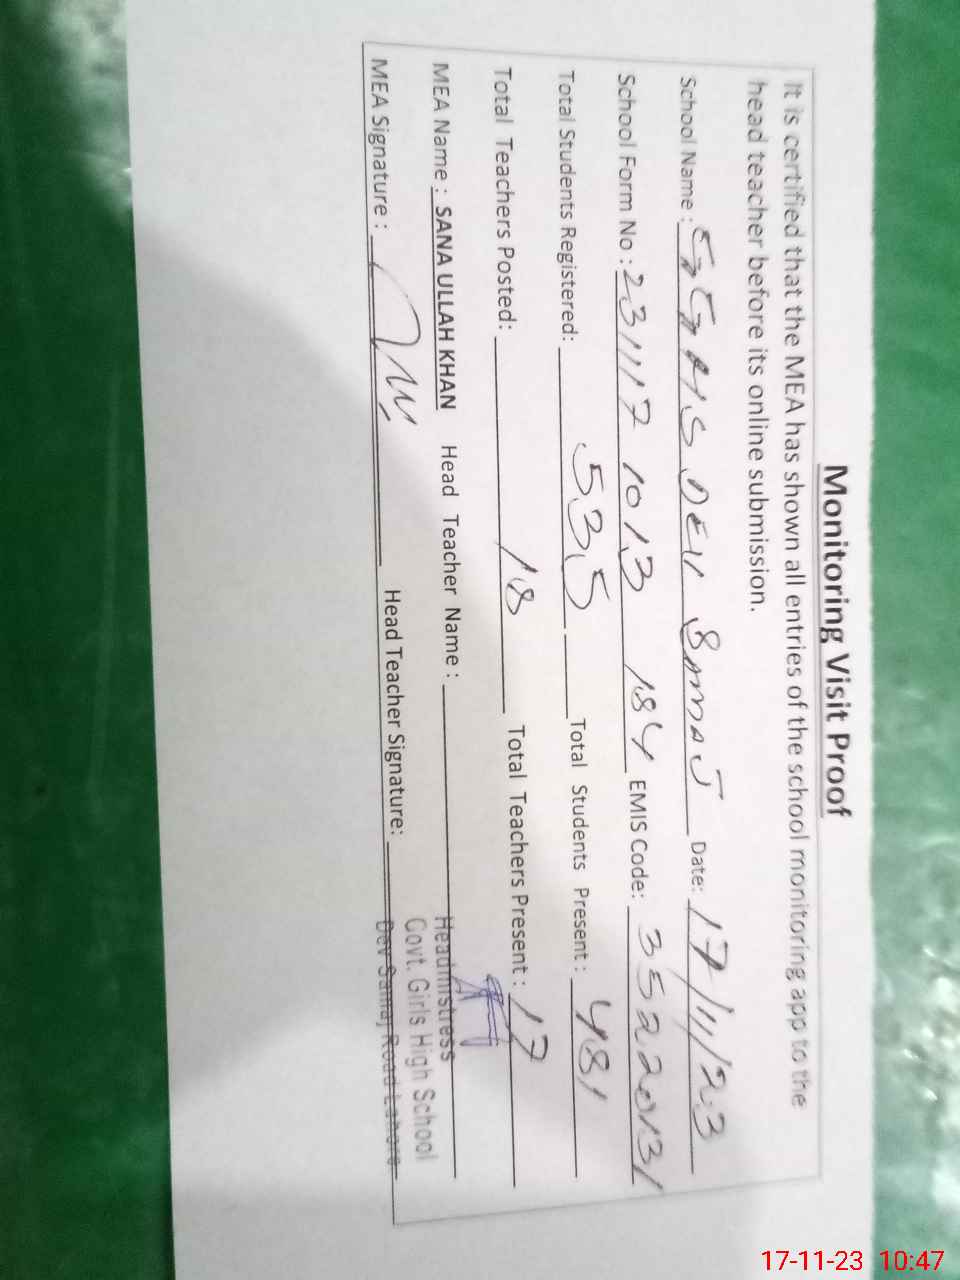 Monitoring Visit Proof
It is certified that the MEA has shown all entries of the school monitoring app to the
head teacher before its online submission.
School Name : GGHS DEV SAMAJ Date: 17/11/23
School Form No : 231117 1013 184 EMIS Code: 35220131
Total Students Registered: 535 Total Students Present : 481
Total Teachers Posted: 18 Total Teachers Present : 17
MEA Name : SANA ULLAH KHAN Head Teacher Name :
MEA Signature : Head Teacher Signature:
Headmistress
Govt. Girls High School
Dev Samaj Road Lahore
17-11-23 10:47